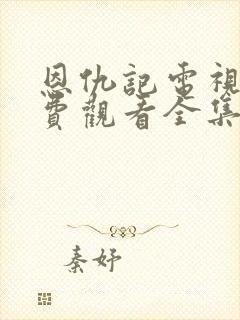 恩仇記電視
費觀看全集
秦妤